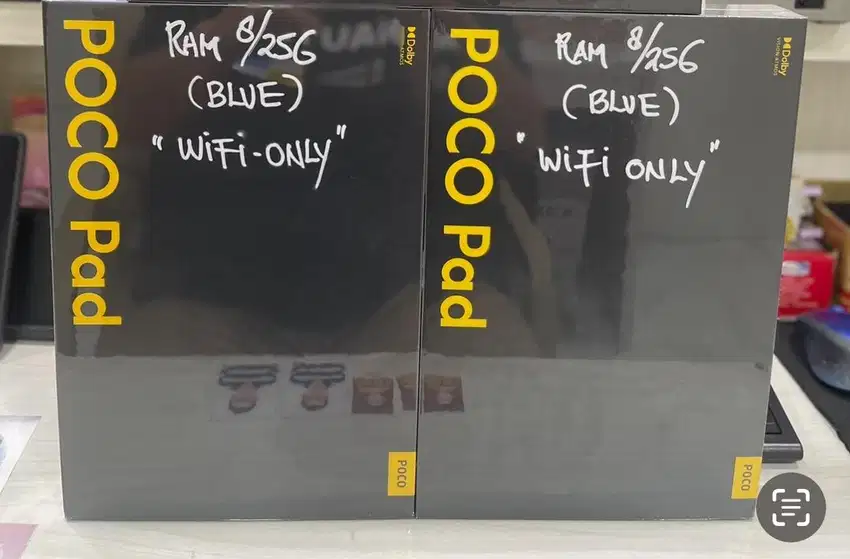 POCO Pad
RAM 8/256
(BLUE)
"WiFi-ONLY"
Dolby
VISION·ATMOS
POCO
POCO Pad
RAM 8/256
(BLUE)
"WiFi ONLY"
Dolby
VISION·ATMOS
POCO